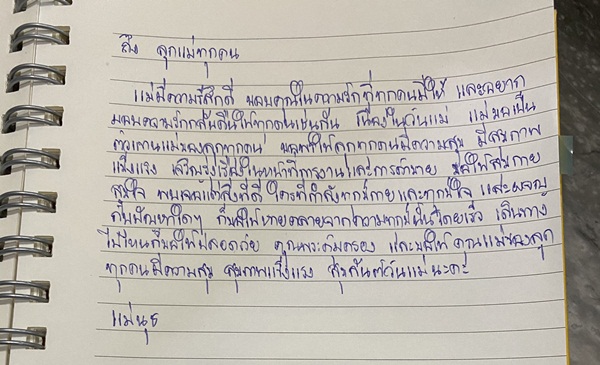 ถึง ลูกแม่ทุกคน
แม่มีความรู้สึกดี ขอบคุณในความรักที่ทุกคนมีให้ และอยาก
มอบความรักอันดีนี้ให้ทุกคนเช่นกัน เนื่องในวันแม่ แม่ขอเป็น
ตัวแทนแม่ของลูกทุกคน ขอให้ลูกทุกคนมีความสุข มีสุขภาพ
แข็งแรง เจริญรุ่งเรืองในหน้าที่การงานและการค้าขาย ขอให้สบาย
สบายใจ พบเจอแต่สิ่งที่ดี ใครที่กำลังทุกข์กายและทุกข์ใจ และผจญ
กับปัญหาใดๆ ก็ขอให้หายคลายจากความทุกข์นั้นโดยเร็ว เดินทาง
ไปไหนก็ขอให้ปลอดภัย คุณพระคุ้มครอง และขอให้คุณแม่ของลูก
ทุกคนมีความสุข สุขภาพแข็งแรง สุขสันต์วันแม่นะคะ
แม่นุช